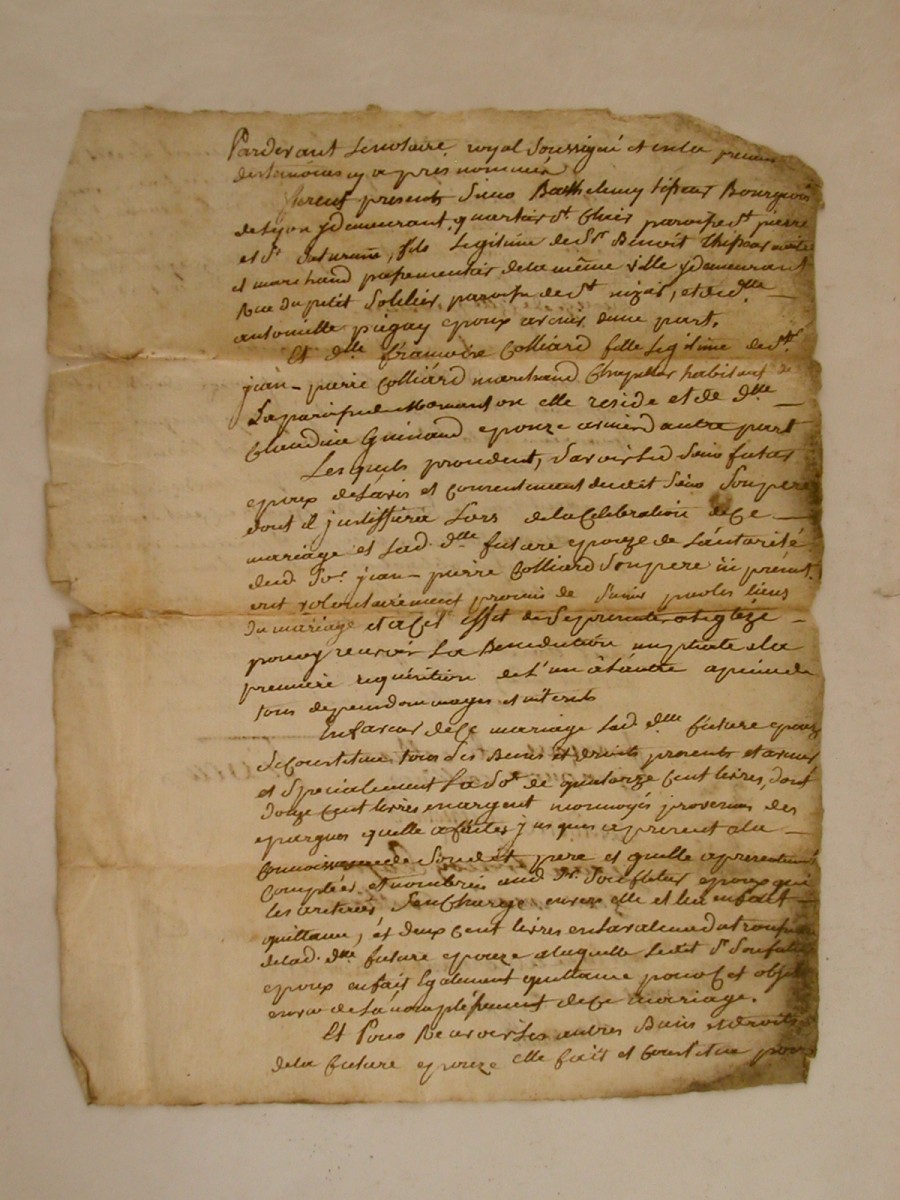 Pardevant Lenotaire royal Soussigné et enla presence
destemoins cy apres nommés
furent presents Sieur Barthelemy tisseur Bourgeois
de Lyon y demeurant, quartier St Clair paroisse St pierre
et St Saturnin, fils Legitime de Sr Benoit Thisseur maitre
et marchand passementier de la même ville y demeurant
Rue du petit Soldier, paroisse de St nizier, et de dlle
antoinette piegay epoux avenir dune part.
Et dlle francoise Colliard fille Legitime de Sr
jean-pierre Colliard marchand Chapellier habitant de
La paroisse de mornant ou elle reside et de dlle
Claudine Guinand epouze avenir dautre part
Lesquels procedent, Savoir Led Sieur futur
epoux de Lavis et consentement dudit Sieur Son pere
dont il justiffiera Lors de la Celebration de Ce
mariage et Lad. dlle future epouze de Lautorité
dud Sr. jean-pierre Colliard Son pere ici présent
ont volontairement promis de Sunir par les liens
du mariage et a Cet effet de Se presenter a leglize
pour y recevoir La Benediction nuptiale a la
premiere requisition de L'un a Lautre a peine de
tous depens dommages et interets
En faveur de Ce mariage Lad. dlle future epouze
Se Constitue tous Ses Biens et droits presents et avenir
et Specialement La Se de quatorze Cent livres, dont
douze Cent livres en argent monnoyé provenus des
epargnes quelle a faites jusques a present a la
Connoissance de Sondit pere et quelle a presentement
Comptées et nombrées aud Sr. Son futur epoux qui
les a retirées, Sen Charge envers elle et lui en fait
quittance, et deux Cent livres en la valeur du trousseau
de lad. dlle future epouze a laquelle Ledit Sr Son futur
epoux en fait Egalement quittance pour Cet objet
en vue de Lacomplissement de Ce mariage.
Et Pour Recevoir Les autres Biens et droits
de la future epouze elle fait et Constitue pour